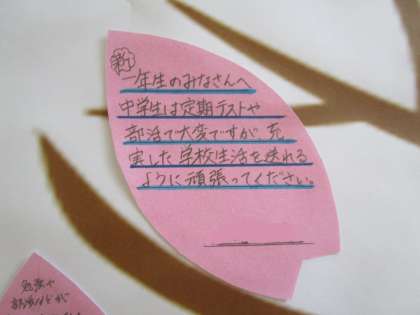 新
一年生のみなさんへ
中学生は定期テストや
部活で大変ですが充
実した学校生活を送れる
ように頑張ってください。
勉強や